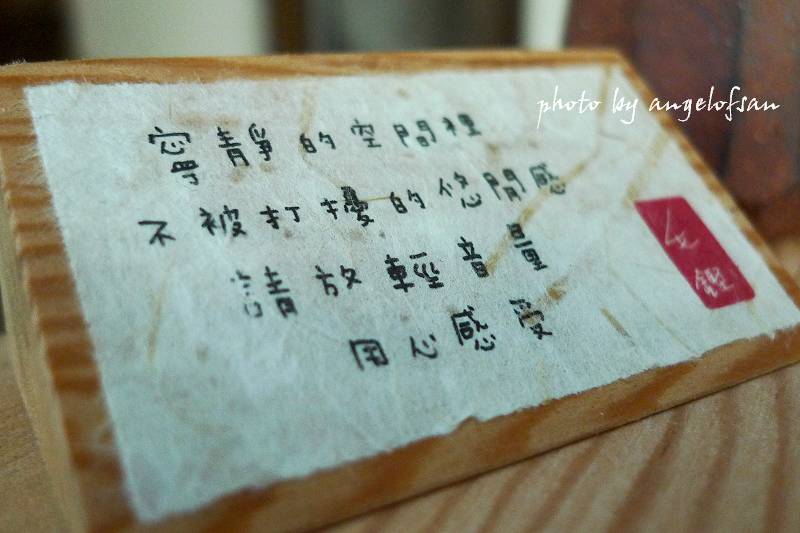 photo by angelofsan
寧靜的空間裡
不被打擾的悠閒感
請放輕音量
用心感受